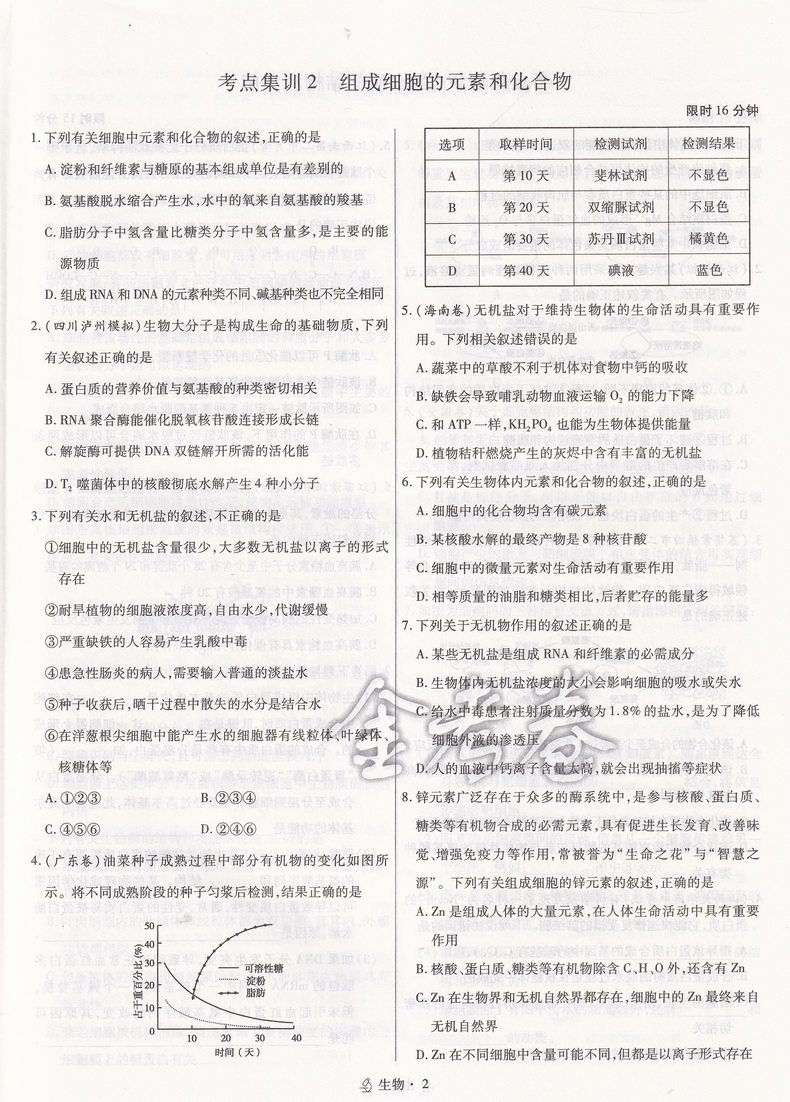 考点集训2 组成细胞的元素和化合物
限时16分钟
1.下列有关细胞中元素和化合物的叙述,正确的是
A.淀粉和纤维素与糖原的基本组成单位是有差别的
B.氨基酸脱水缩合产生水,水中的氧来自氨基酸的羧基
C.脂肪分子中氢含量比糖类分子中氢含量多,是主要的能
源物质
D.组成RNA和DNA的元素种类不同,碱基种类也不完全相同
2.(四川泸州模拟)生物大分子是构成生命的基础物质,下列
有关叙述正确的是
A.蛋白质的营养价值与氨基酸的种类密切相关
B.RNA聚合酶能催化脱氧核苷酸连接形成长链
C.解旋酶可提供DNA双链解开所需的活化能
D.T₂噬菌体中的核酸彻底水解产生4种小分子
3.下列有关水和无机盐的叙述,不正确的是
①细胞中的无机盐含量很少,大多数无机盐以离子的形式
存在
②耐旱植物的细胞液浓度高,自由水少,代谢缓慢
③严重缺铁的人容易产生乳酸中毒
④患急性肠炎的病人,需要输入普通的淡盐水
⑤种子收获后,晒干过程中散失的水分是结合水
⑥在洋葱根尖细胞中能产生水的细胞器有线粒体、叶绿体、
核糖体等
A.①②③ B.②③④
C.④⑤⑥ D.②④⑥
4.(广东卷)油菜种子成熟过程中部分有机物的变化如图所
示。将不同成熟阶段的种子匀浆后检测,结果正确的是
占干重百分比(%)
50
40
30
20
10
0
10 20 30 40
时间(天)
可溶性糖
淀粉
脂肪
选项 取样时间 检测试剂 检测结果
A 第10天 斐林试剂 不显色
B 第20天 双缩脲试剂 不显色
C 第30天 苏丹Ⅲ试剂 橘黄色
D 第40天 碘液 蓝色
5.(海南卷)无机盐对于维持生物体的生命活动具有重要作
用。下列相关叙述错误的是
A.蔬菜中的草酸不利于机体对食物中钙的吸收
B.缺铁会导致哺乳动物血液运输O₂的能力下降
C.和ATP一样,KH₂PO₄也能为生物体提供能量
D.植物秸秆燃烧产生的灰烬中含有丰富的无机盐
6.下列有关生物体内元素和化合物的叙述,正确的是
A.细胞中的化合物均含有碳元素
B.某核酸水解的最终产物是8种核苷酸
C.细胞中的微量元素对生命活动有重要作用
D.相等质量的油脂和糖类相比,后者贮存的能量多
7.下列关于无机物作用的叙述正确的是
A.某些无机盐是组成RNA和纤维素的必需成分
B.生物体内无机盐浓度的大小会影响细胞的吸水或失水
C.给水中毒患者注射质量分数为1.8%的盐水,是为了降低
细胞外液的渗透压
D.人的血液中钙离子含量太高,就会出现抽搐等症状
8.锌元素广泛存在于众多的酶系统中,是参与核酸、蛋白质、
糖类等有机物合成的必需元素,具有促进生长发育、改善味
觉,增强免疫力等作用,常被誉为“生命之花”与“智慧之
源”。下列有关组成细胞的锌元素的叙述,正确的是
A.Zn是组成人体的大量元素,在人体生命活动中具有重要
作用
B.核酸、蛋白质、糖类等有机物除含C、H、O外,还含有Zn
C.Zn在生物界和无机自然界都存在,细胞中的Zn最终来自
无机自然界
D.Zn在不同细胞中含量可能不同,但都是以离子形式存在
金考卷
生物·2